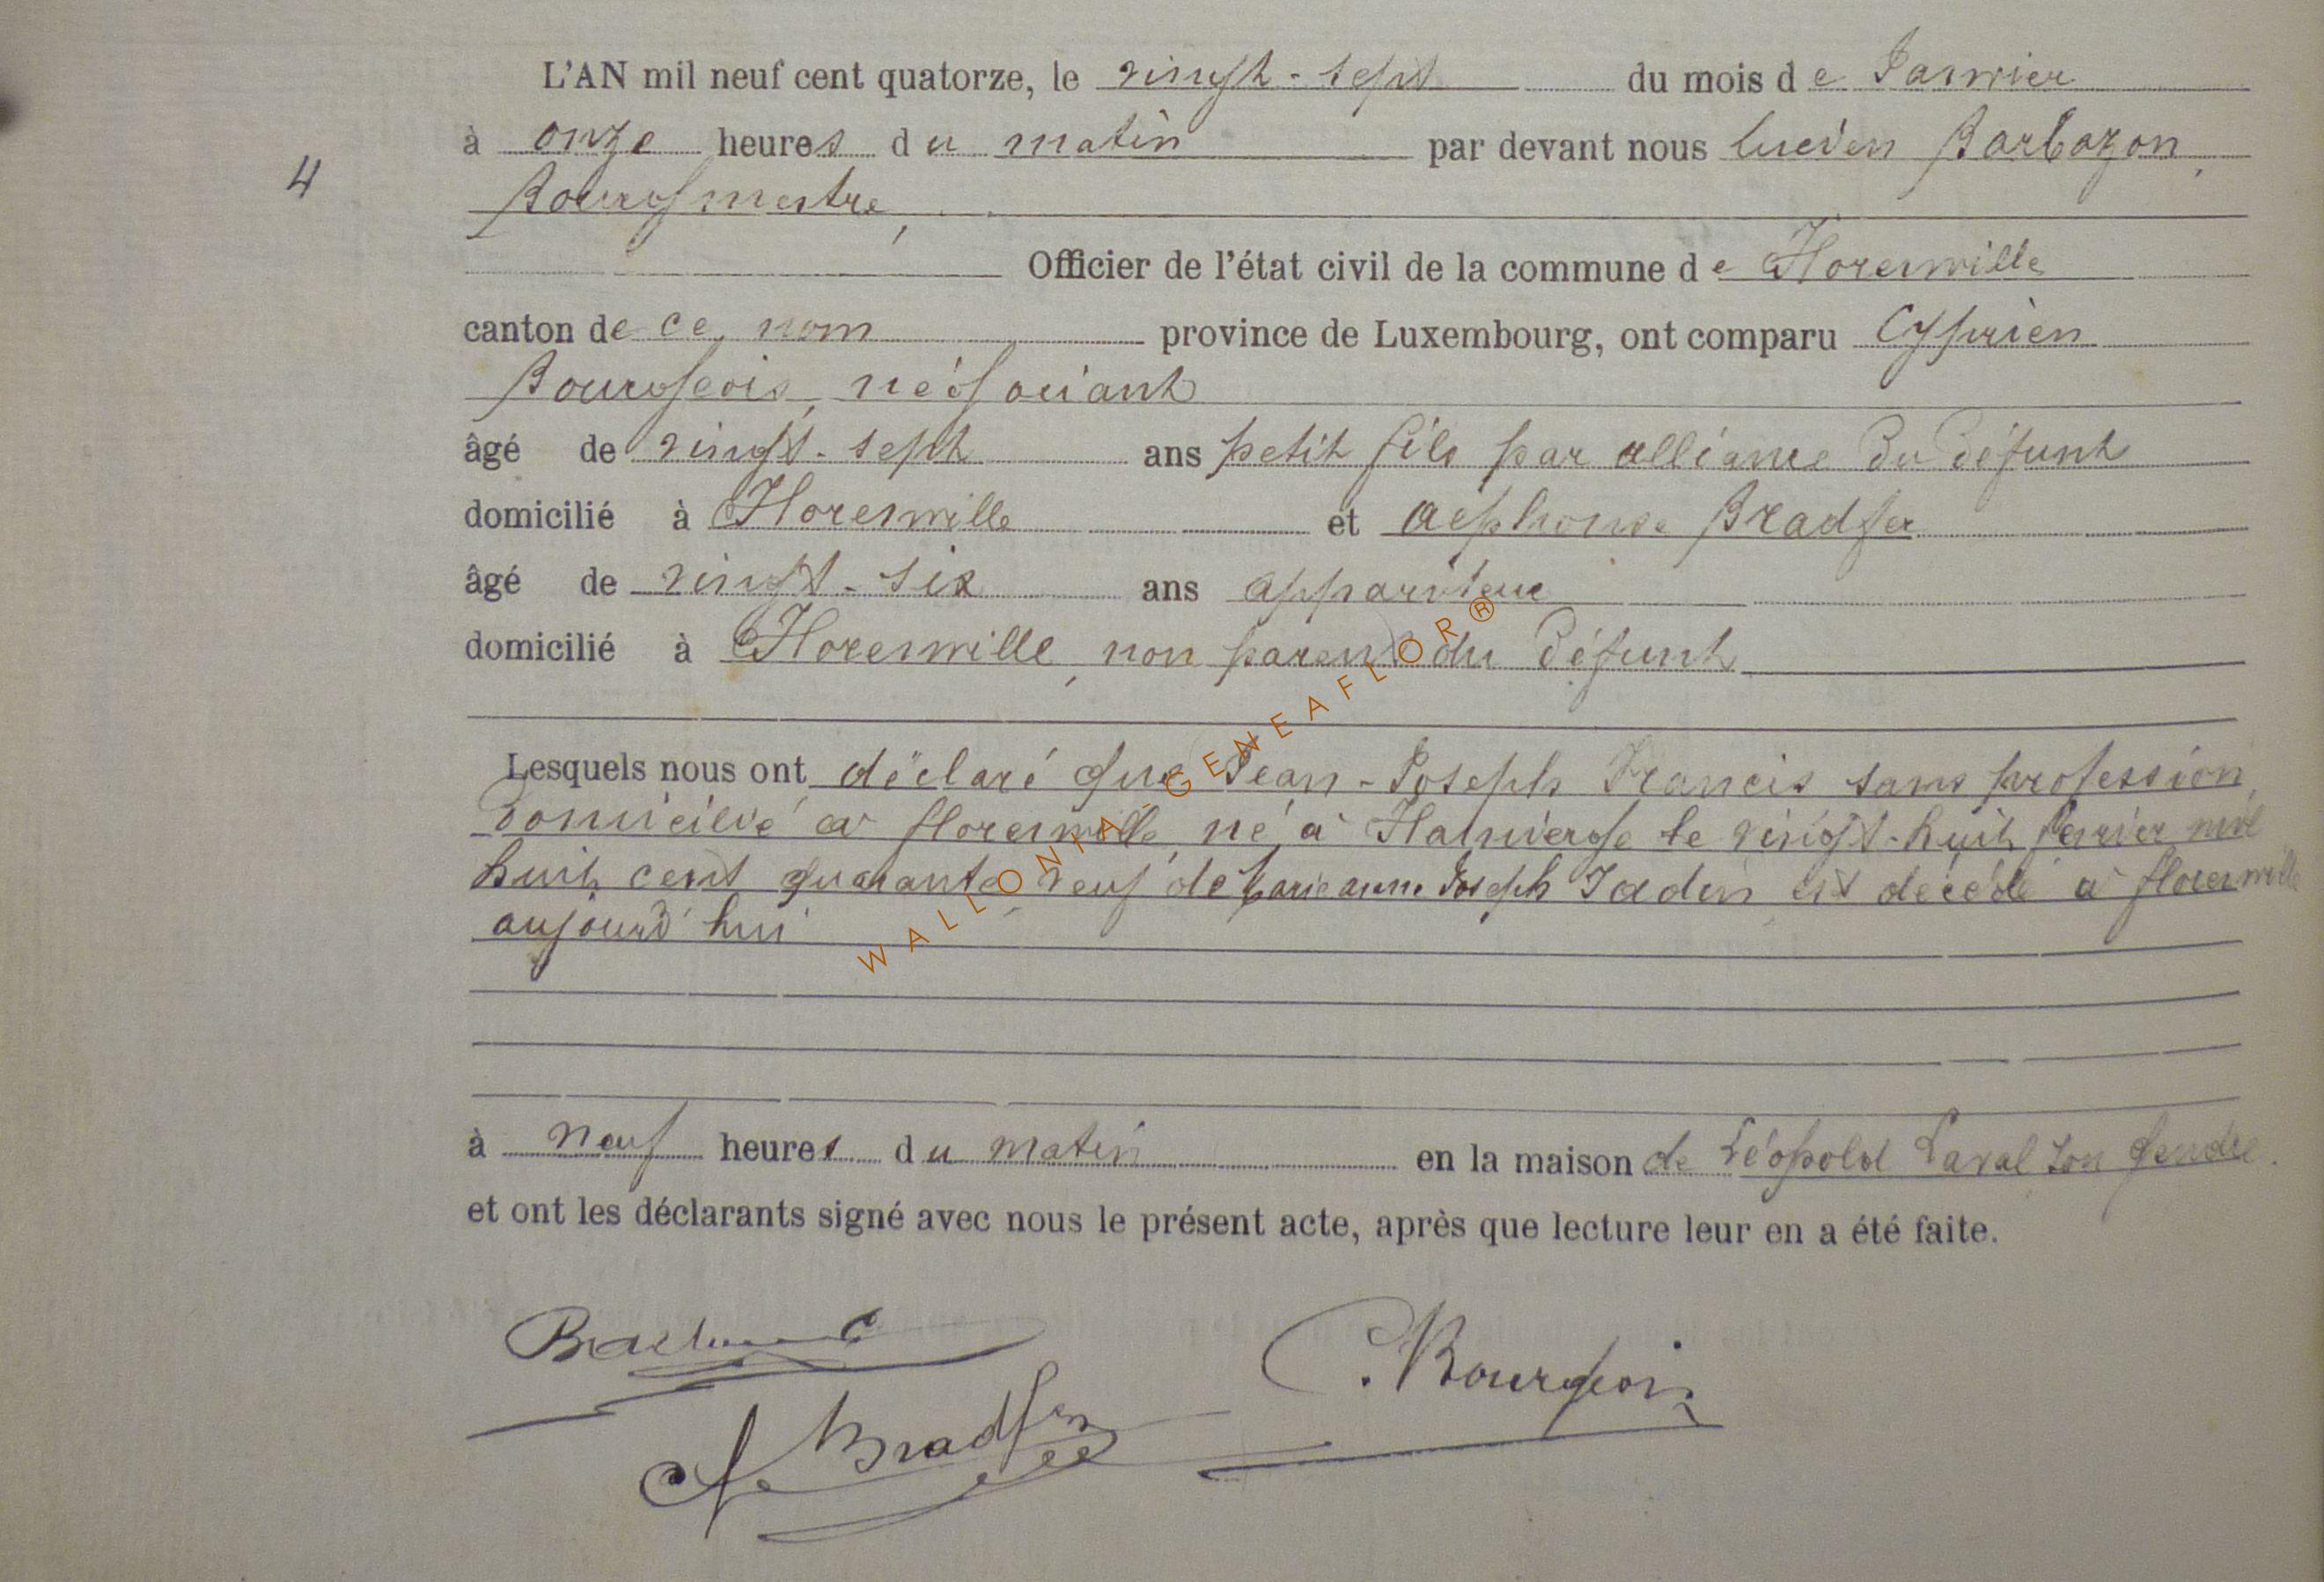 L'AN mil neuf cent quatorze, le vingt-sept du mois de Janvier
à onze heures du matin par devant nous Lucien Barbazon,
4
Bourgmestre,
Officier de l'état civil de la commune de Florenville
canton de ce nom province de Luxembourg, ont comparu Cyprien
Bourgeois, négociant
âgé de vingt-sept ans petit fils par alliance du défunt
domicilié à Florenville et Alphonse Bradfer
âgé de vingt-six ans appariteur
domicilié à Florenville, non parent du défunt
Lesquels nous ont déclaré que Jean-Joseph Francis sans profession,
domicilié à florenville, né à Flamierge le vingt-huit février mil
huit cent quarante, veuf de Marie anne Joseph Jadin, est décédé à florenville
aujourd'hui
à neuf heures du matin en la maison de Léopold Laval son gendre.
et ont les déclarants signé avec nous le présent acte, après que lecture leur en a été faite.
C. Bourgeois
Bradfer
WALLONIA GENEAFLOR®